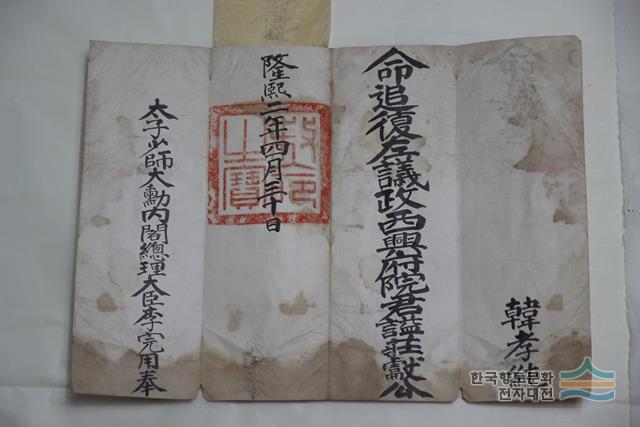 韓孝純
命追復左議政西興府院君謚莊獻公
隆熙二年四月三十日
勅命之寶
太子少師大勳內閣總理大臣李完用奉
한국향토문화
전자대전